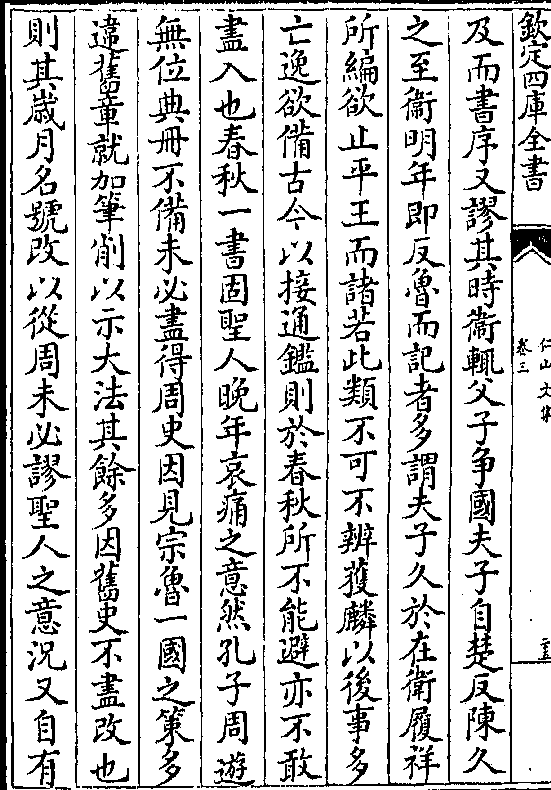 欽定四庫全書
仁山文集
卷三
二十三
及而書序又謬其時衞輒父子争國夫子自楚反陳久
之至衞明年即反魯而記者多謂夫子久於在衛履祥
所編欲止平王而諸若此類不可不辨獲麟以後事多
亡逸欲備古今以接通鑑則於春秋所不能避亦不敢
盡入也春秋一書固聖人晚年哀痛之意然孔子周遊
無位典冊不備未必盡得周史因見宗魯一國之策多
違舊章就加筆削以示大法其餘多因舊史不盡改也
則其嵗月名號改以從周未必謬聖人之意況又自有